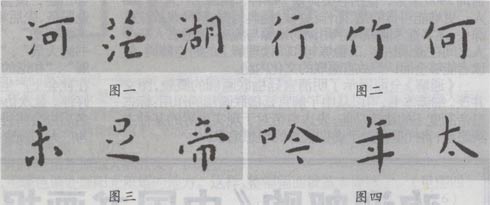 河 茫 湖 行 竹 何
图一 图二
未 足 帝 吟 年 太
图三 图四